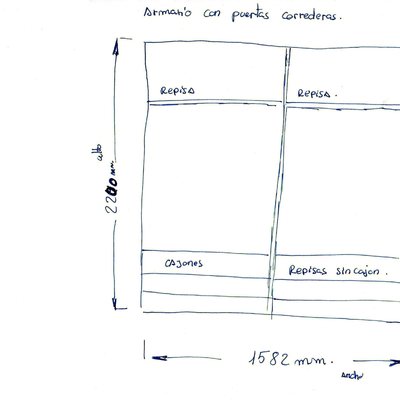 Armario con puertas correderas.
REPISA
REPISA.
alto
2200 mm.
CAJONES
REPISAS sin cajon.
1582 mm.
ancho